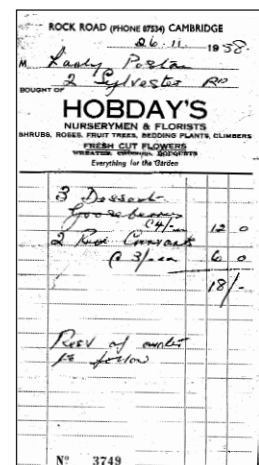 ROCK ROAD (PHONE 87534) CAMBRIDGE
26.11. 1958.
M Lady Postan
2 Sylvester Rd
BOUGHT OF
HOBDAY'S
NURSERYMEN & FLORISTS
SHRUBS, ROSES, FRUIT TREES, BEDDING PLANTS, CLIMBERS
FRESH CUT FLOWERS
WREATHS, BOUQUETS
Everything for the Garden
3 Dessert
Gooseberry
@ 4/- 12 0
2 Red Currant
@ 3/- ea 6 0
18/-
Rest of order
to follow
Nº 3749